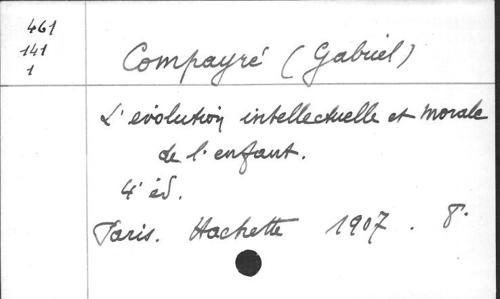 461
141
1
Compayré (Gabriel)
L'évolution intellectuelle et morale
de l'enfant.
4' éd.
Paris. Hachette 1907. 8°.